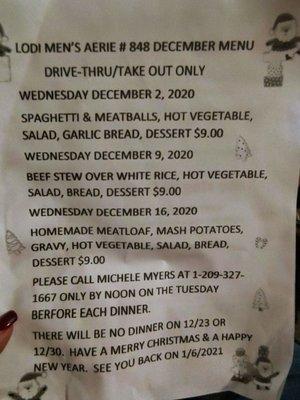 LODI MEN'S AERIE # 848 DECEMBER MENU
DRIVE-THRU/TAKE OUT ONLY
WEDNESDAY DECEMBER 2, 2020
SPAGHETTI & MEATBALLS, HOT VEGETABLE,
SALAD, GARLIC BREAD, DESSERT $9.00
WEDNESDAY DECEMBER 9, 2020
BEEF STEW OVER WHITE RICE, HOT VEGETABLE,
SALAD, BREAD, DESSERT $9.00
WEDNESDAY DECEMBER 16, 2020
HOMEMADE MEATLOAF, MASH POTATOES,
GRAVY, HOT VEGETABLE, SALAD, BREAD,
DESSERT $9.00
PLEASE CALL MICHELE MYERS AT 1-209-327-
1667 ONLY BY NOON ON THE TUESDAY
BERFORE EACH DINNER.
THERE WILL BE NO DINNER ON 12/23 OR
12/30. HAVE A MERRY CHRISTMAS & A HAPPY
NEW YEAR. SEE YOU BACK ON 1/6/2021